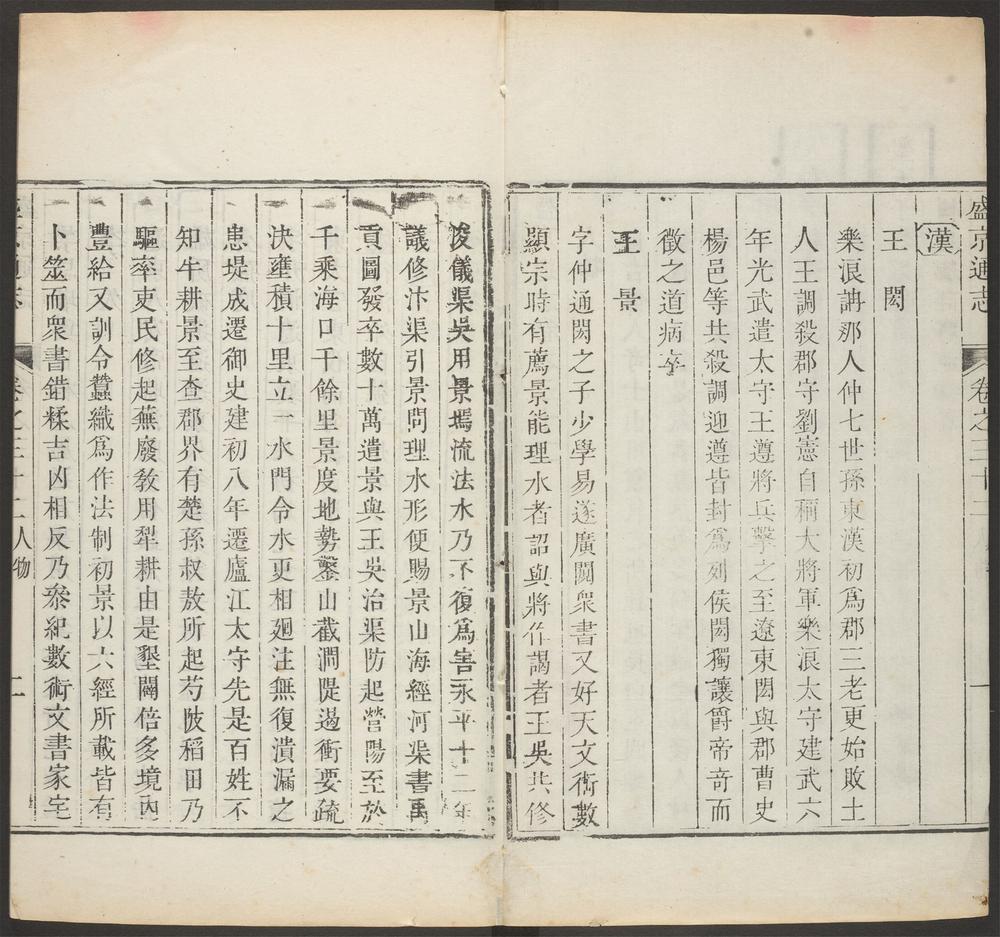 盛京通志 卷之三十
漢
王閎
樂浪䛁那人仲七世孫東漢初爲郡三老更始敗土
人王調殺郡守劉憲自稱大將軍樂浪太守建武六
年光武遣太守王遵將兵擊之至遼東閎與郡曹史
楊邑等共殺調迎遵皆封爲列侯閎獨讓爵帝奇而
徵之道病卒
王景
字仲通閎之子少學易遂廣闚衆書又好天文術數
顯宗時有薦景能理水者詔與將作謁者王吳共修
浚儀渠吳用景墕流法水乃不復爲害永平十二年
議修汴渠引景問理水形便賜景山海經河渠書禹
貢圖發卒數十萬遣景與王吳治渠防起營陽至於
千乘海口千餘里景度地勢鑿山截澗隄遏衝要疏
決壅積十里立一水門令水更相廻注無復潰漏之
患堤成遷御史建初八年遷廬江太守先是百姓不
知牛耕景至查郡界有楚孫叔敖所起芍陂稻田乃
驅率吏民修起蕪廢敎用犂耕由是墾闢倍多境內
豐給又訓令蠶織爲作法制初景以六經所載皆有
卜筮而衆書錯糅吉凶相反乃叅紀數術文書家宅
卷之三十二人物 二